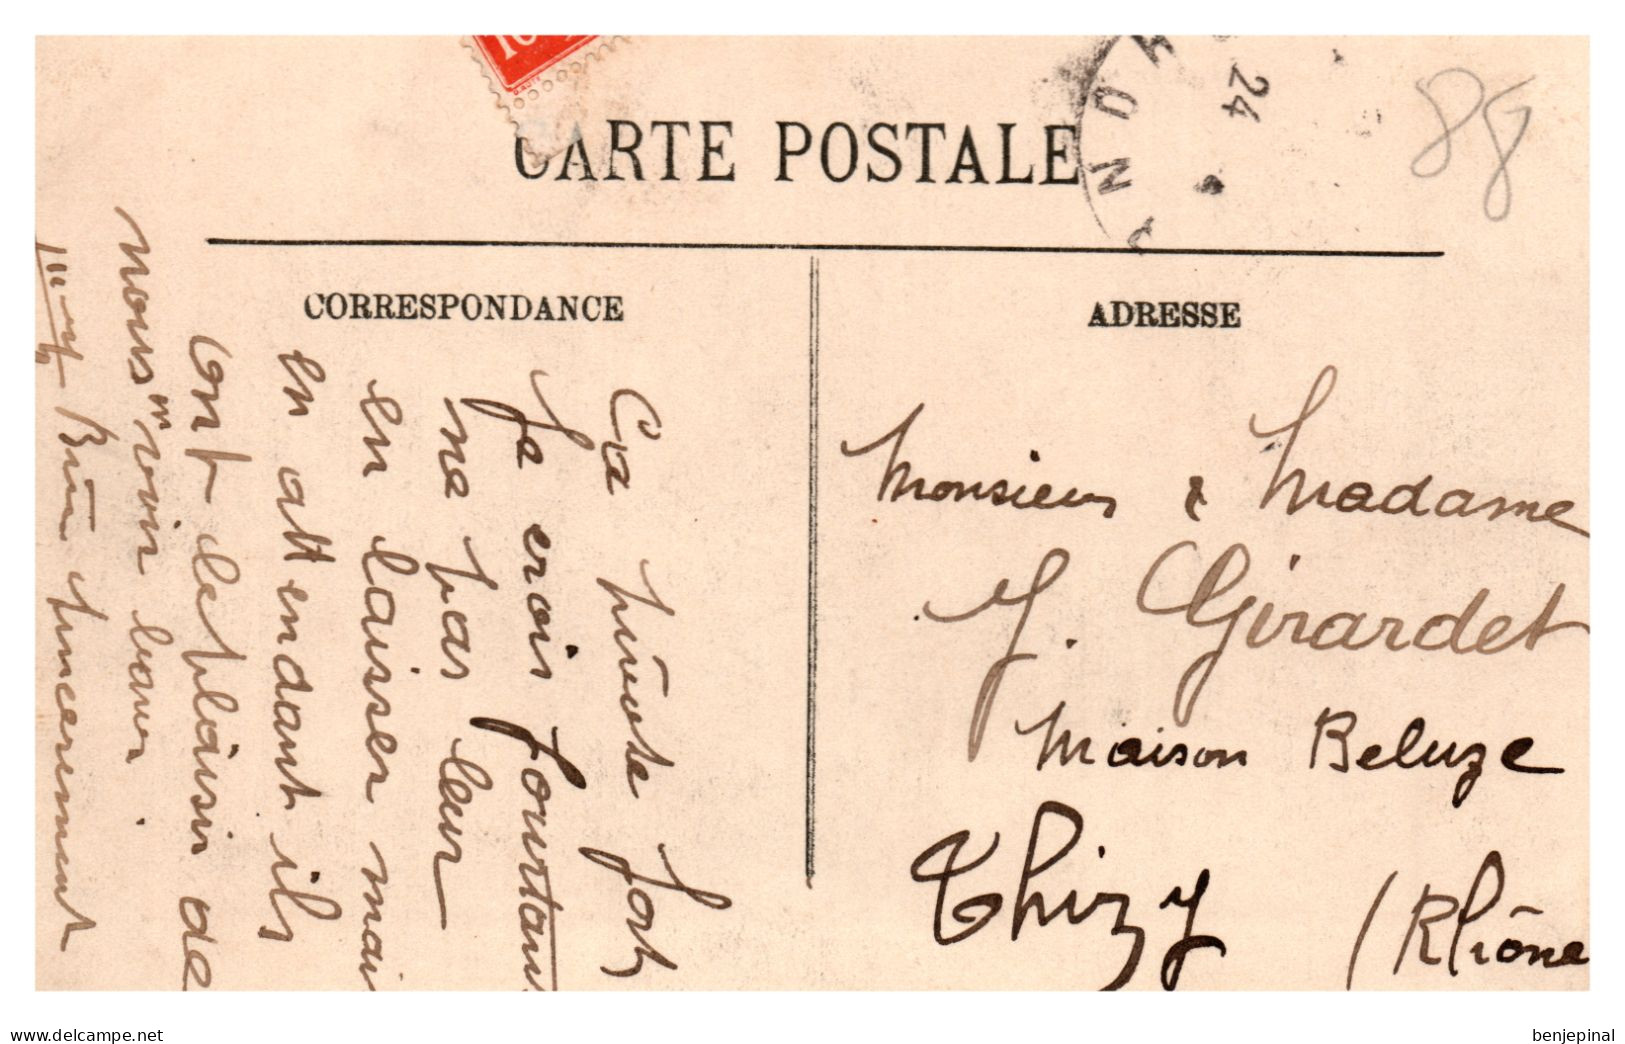 10
CARTE POSTALE
24
88
CORRESPONDANCE
ADRESSE
Ça presse fort
Je crois pourtant
ne pas leur
en laisser mais
en attendant ils
ont le plaisir de
nous voir bouer
Bien sincerement
Monsieur & Madame
J. Girardet
Maison Beluze
Thizy
(Rhône
www.delcampe.net
benjepinal